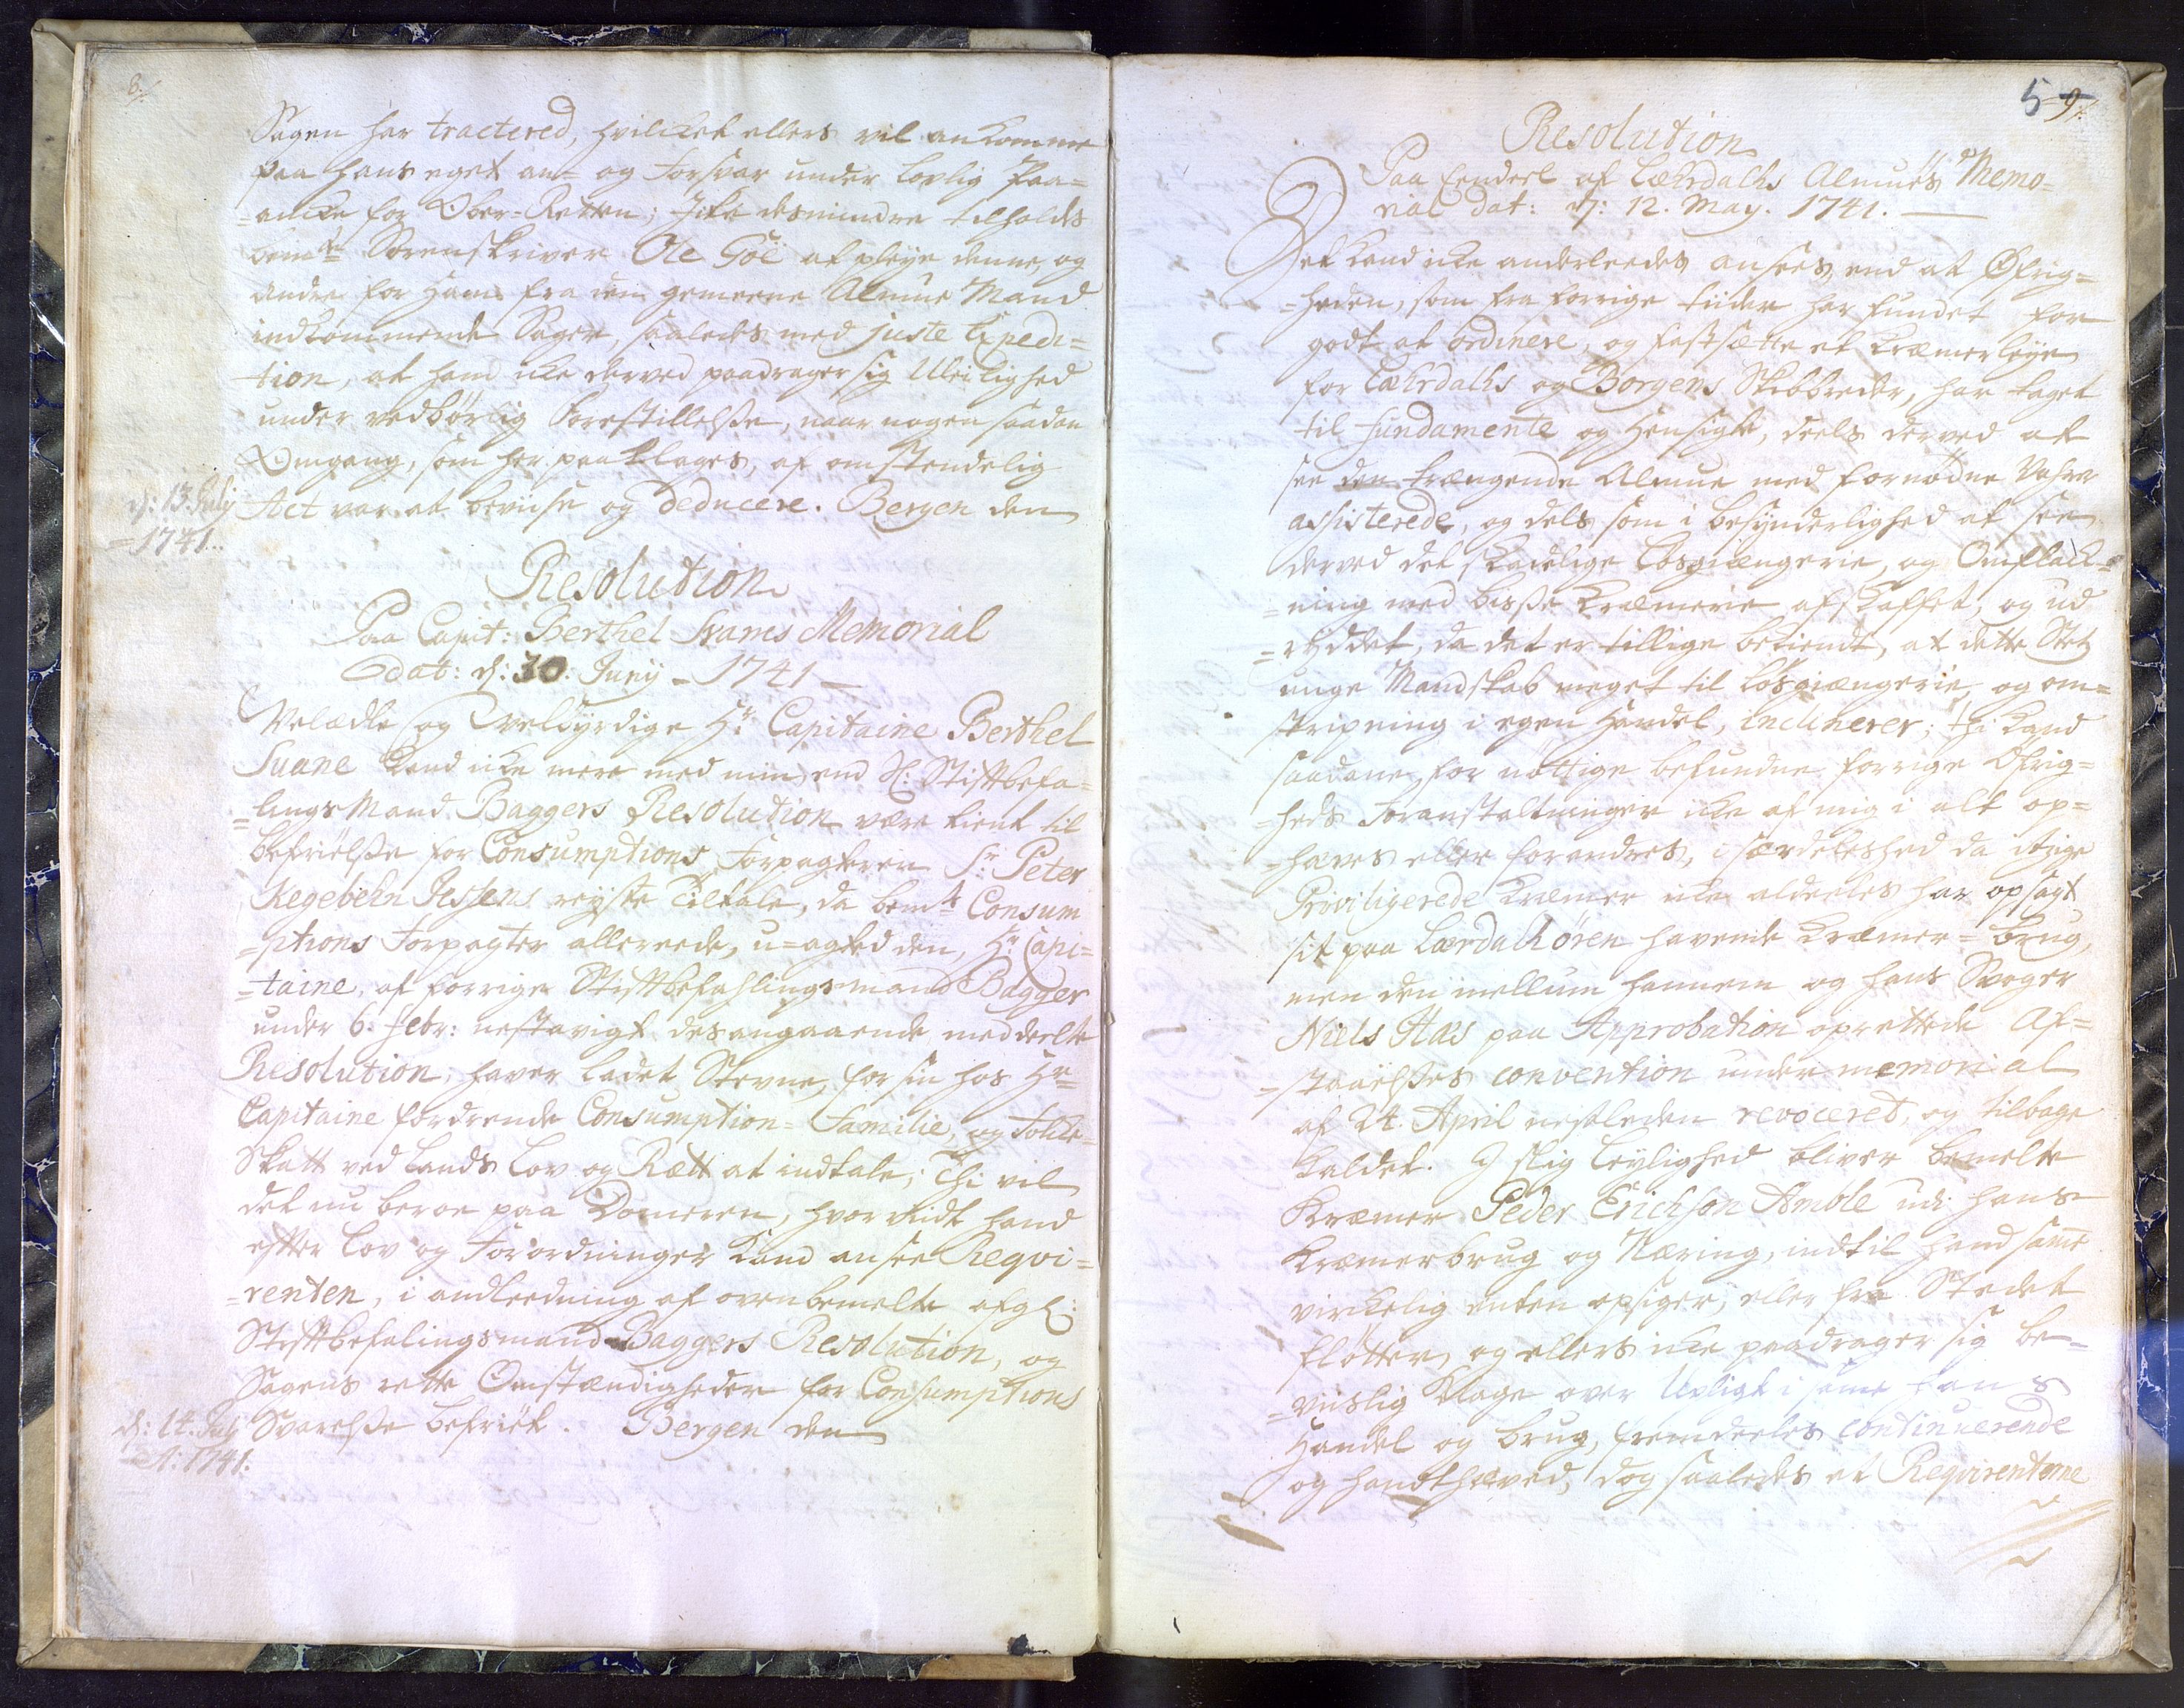 8./.
Sagen har tractered, hvilcket ellers vil ankomme
paa hans eget an= og forsvar under lovlig Paa=
=ancke for Ober=Retten; Icke desmindre tilholdes
bemte Sorenskriver Ole Göe at pleye denne, og
andre for Ham fra den gemeene Almue Mand
indkommende Sager, saaledes med juste Expedi=
tion, at hand icke derved paadrager sig Uleilighed
under vedbørlig Forestillelse, naar nogen saadan
Omgang, som her paaklages, af omstendelig
Act var at beviise og deducere. Bergen den
d: 13 July
=1741...
Resolution
Paa Capit: Berthel Svanes Memorial
dat: d: 30. Juny - 1741 -
Velædle og velbyrdige Hr: Capitaine Berthel
Suane kand icke mere med min, end Sl: Stiftbefa=
=lings Mand Baggers Resolution være tient til
befrielse for Consumptions Forpagteren Sr: Peter
Kegebehn Jessens reyste Tiltale, da bemte Consum
=ptions Forpagter allereede, u=agted den, Hr: Capi=
=taine, af forrige Stiftbefahlingsmand Bagger
under 6: Febr: nestavigt desangaaende meddeelte
Resolution, haver ladet Stevne, for sin hos Hr:
Capitaine fordrende Consumption= Familie, og Folcke=
Skatt ved Lands Lov og Rætt at indtale; Thi vil
det nu beroe paa Domeren, hvorvidt hand
efter Lov og Forordninger kand ansee Reqvi=
=renten, i andleedning af ovenbemelte afgl:
Stiftbefalingsmand Baggers Resolution, og
Sagens rette Omstændigheder for Consumptions
Svarelse befriet. Bergen den
d: 14. July
A: 1741.
5 9/.
Resolution
Paa Eendeel af Lærdalhs Almues Memo=
rial dat: d: 12. May. 1741. —
Det kand icke anderleedes ansees, end at Øfrig=
=heden, som fra forrige tiider har fundet for
godt at ordinere, og fastsætte et Kræmerleye
for Læhrdalhs og Borgens Skibbreder, har taget
til fundamente og Hensigt, deels derved at
see den trængende Almue med fornødne Vahre
assisterede, og dels som i besynderlighed at see
derved det skadelige Løsgiængerie, og Omflack=
=ning med disse Kræmerie afskaffet, og ud
=ryddet, da det er tillige bekiendt, at dette Stetz
unge Mandskab meget til Løsgiængerie, og om=
stripning i egen Handel, inclinerer; thi kand
saadane for nøttige befundne forrige Øfrig=
=heds Foranstaltninger icke af mig i alt op=
=hæves eller forandres, i særdeleshed da itzige
Priviligerede Kræmer icke aldeeles har opsagt
sit paa Lærdalsören havende Kræmer=brug,
men den imellum hannem og hans Svoger
Niels Has paa Approbation oprettede Af=
=staaelses convention under memorial
af 24. April nestleden revoceret, og tilbage
kaldet. I slig Leylighed bliver bemelte
Kræmer Peder Erichson Amble udi hans
Kræmerbrug og Næring, indtil hand samme
virkelig enten opsiger, eller fra Stedet
fløtter, og ellers icke paadrager sig be=
=viislig Klage over Ulvligt i samme hans
Handel og brug, fremdeeles continuerende
og handthæved, dog saaledes at Reqvirenterne